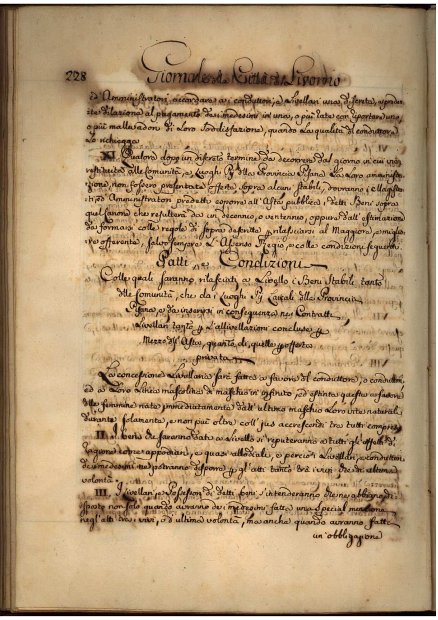 228 Giornale della Città di Livorno
ed Amministratori accordare ai conduttori, e Livellari una discreta, e prudente
dilazione al pagamento dei medesimi in una, o più rate con riportare uno,
o più mallevadori di Loro Soddisfazione, quando La qualità di conduttore
Lo richiegga
XI. Qualora dopo un discreto termine da decorrere dal giorno in cui verrà
restituita alle Comunità, e Luoghi Pij della Provincia Pisana La Loro amministrazione,
non fossero presentate offerte sopra alcuni stabili, dovranno
ed Amministratori predetti esporre all'Asta pubblica i detti Beni sopra
quel Canone che resulterà da un decennio, o ventennio, oppure dall'estimazione
da farsi colle regole di sopra descritte, e rilasciarsi al Maggiore, e migliore
offerente, salvo sempre L'Assenso Regio, e colle condizioni seguenti.
Patti, e Condizioni
Colle quali saranno rilasciati a Livello i Beni Stabili tanto
delle Comunità, che da i Luoghi Pij Laicali della Provincia
Pisana, e da inserirsi in conseguenza nei Contratti
Livellari tanto per L'allivellazioni concluse per
Mezzo dell'Asta, quanto di quelle per offerta
privata
I.
La concessione Livellaria sarà fatta a favore del conduttore, o conduttori,
ed a Loro Linea mascolina di maschio in infinito, ed estinta questa a favore
delle femmine nate immediatamente dall'ultimo maschio Loro vita naturale
durante solamente, e non più oltre coll'jus accrescendi tra tutti compresi
II. I beni che saranno dati a Livello si reputeranno a tutti gli effetti di
ragione come appodiati, o quasi allodiali, e perciò i Livellari, e conduttori
dei medesimi ne potranno disporre per gli atti tanto tra i vivi, che di ultima
volontà
III. I Livellari, e Possessori di detti beni s'intenderanno che ne abbiano disposto
non solo quando avranno dei medesimi fatta una special menzione
negl'atti tra i vivi, o d'ultima volontà, ma anche quando avranno fatta
un'obbligazione